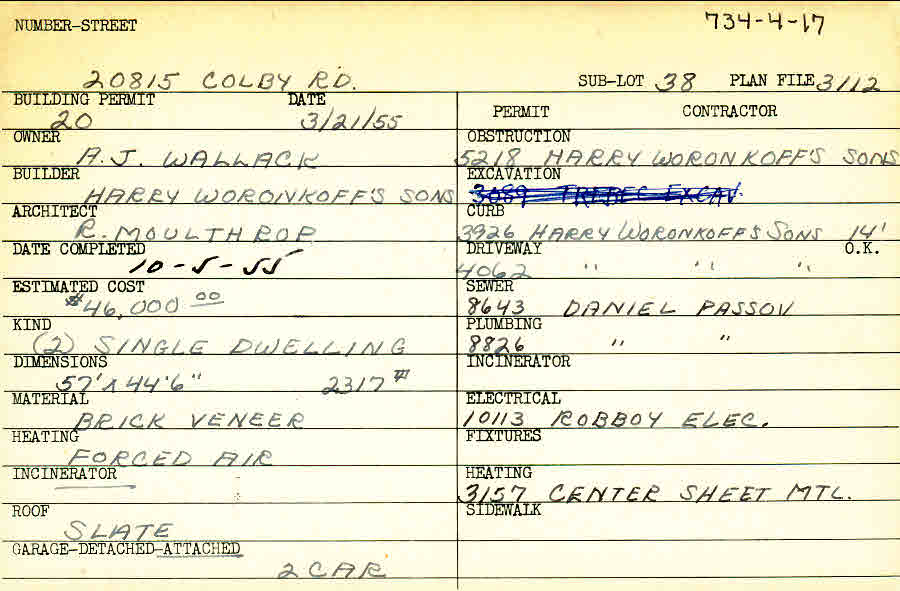 734-4-17
NUMBER-STREET
20815 COLBY RD. SUB-LOT 38 PLAN FILE 3112
BUILDING PERMIT DATE
20 3/21/55
OWNER
A.J. WALLACK
BUILDER
HARRY WORONKOFF'S SONS
ARCHITECT
R. MOULTHROP
DATE COMPLETED
10-5-55
ESTIMATED COST
$46,000 00
KIND
(2) SINGLE DWELLING
DIMENSIONS
57' x 44'6" 2317 #
MATERIAL
BRICK VENEER
HEATING
FORCED AIR
INCINERATOR
ROOF
SLATE
GARAGE-DETACHED-ATTACHED
2 CAR
PERMIT CONTRACTOR
OBSTRUCTION
5218 HARRY WORONKOFF'S SONS
EXCAVATION
3089 TREBEC EXCAV.
CURB
3926 HARRY WORONKOFF'S SONS 14'
DRIVEWAY O.K.
4062 " " "
SEWER
8643 DANIEL PASSOV
PLUMBING
8826 " "
INCINERATOR
ELECTRICAL
10113 ROBBOY ELEC.
FIXTURES
HEATING
3157 CENTER SHEET MTL.
SIDEWALK